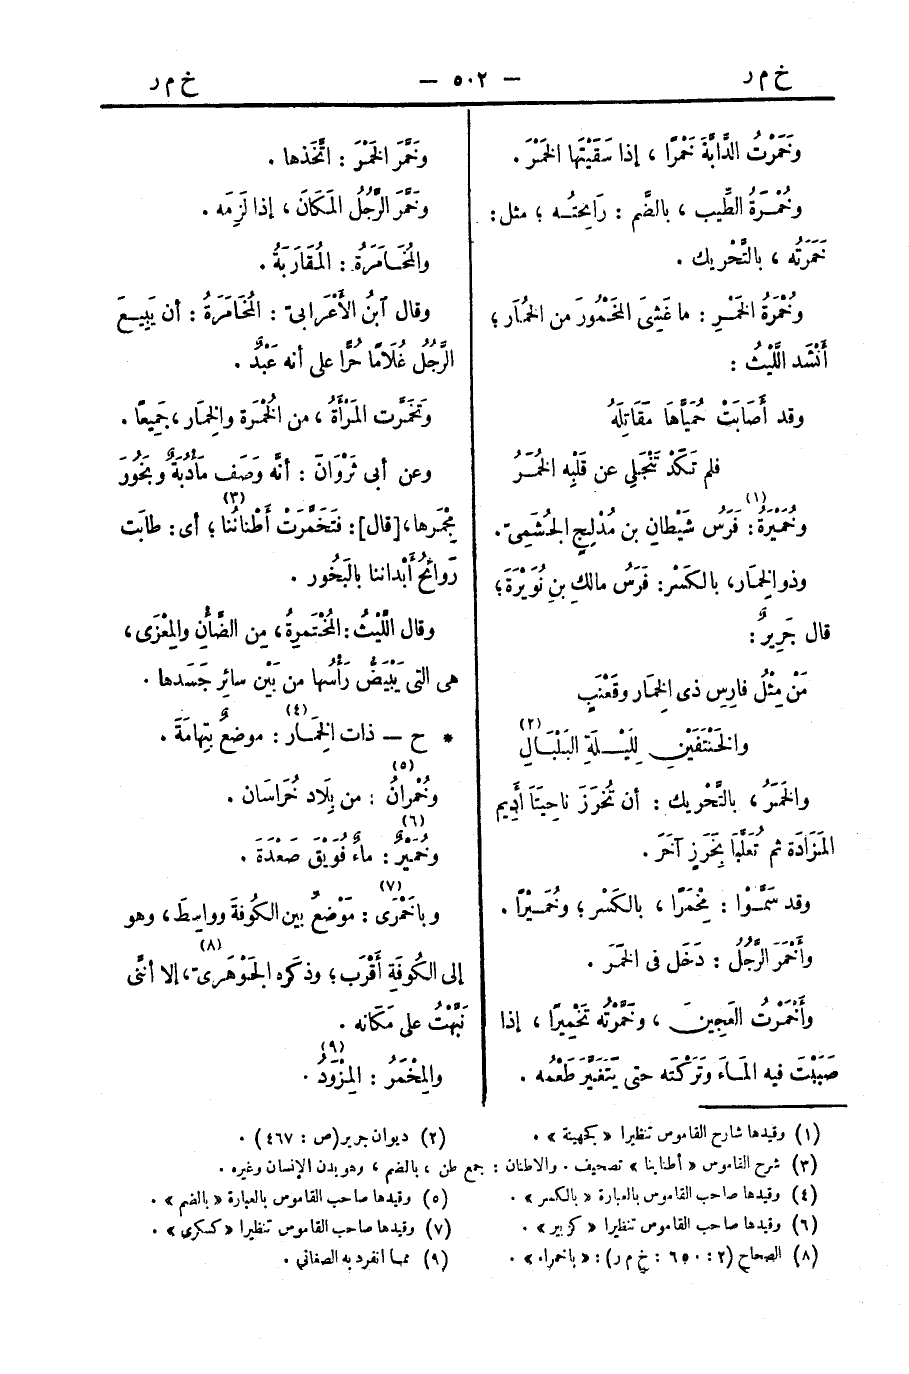 خ م ر — ٥٠٢ — خ م ر
وخَمَرْتُ الدَّابَّةَ خَمْرًا ، إذا سَقَيْتَها الخَمْرَ .
وخُمْرَةُ الطِّيب ، بالضَّم : رَائِحتُـه ؛ مثل :
خَمَرَتُه ، بالتَّحْريك .
وخُمْرَةُ الخَمْرِ : ما غَشِىَ المَخْمُورَ من الخُمَار ؛
أَنْشَد اللَّيْثُ :
وقد أَصَابَتْ حُمَيَّاهَا مَقَاتِلَهُ
فلم تَكَدْ تَنْجَلِي عن قَلْبِه الخُمَرُ
وخُمَيْرَةُ(١): فَرَس شَيْطان بن مُدْلِجٍ الجُشَمِىّ .
وذو الخِمَار، بالكَسْر: فَرَسُ مالك بن نُوَيْرَةَ ؛
قال جَرِيرٌ :
مَنْ مِثْلُ فارِس ذى الخِمَار وقَعْنَبٍ
والحَنْتَفَيْنِ لِلَيْـلَةِ البَلْبَالِ(٢)
والخَمَرُ ، بالتَّحْريك : أن تُخْرَزَ ناحِيَتَا أَدِيم
المَزَادَة ثم تُعَلَّيَا بِخَرْزٍ آخَرَ .
وقد سَمَّـوْا : مِخْمَرًا ، بالكَسْر ؛ وخُمَـيْرًا .
وأَخْمَرَ الرَّجُلُ : دَخَل فى الخَمَر .
وأَخْمَرْتُ العَجِينَ ، وخَمَّرْتُه تَخْمِيرًا ، إذا
صَبَبْتَ فيه المَـاءَ وتَرَكْتَه حتى يَتَغَيَّر طَعْمُه .
وخَمَّرَ الخَمْرَ : اتَّخَذها .
وخَمَّرَ الرَّجُلُ المَكَانَ ، إذا لَزِمَه .
والمُخَـامَرَةُ : المُقَارَبَةُ .
وقال ٱبنُ الأَعْرَابىّ : المُخَامَرَةُ : أن يَبِيـعَ
الرَّجُلُ غُلَامًا حُرًّا على أنه عَبْدٌ .
وتَخَمَّرت المَرْأَةُ ، من الخُمْرَة والخِمَار ، جَمِيعًا .
وعن أبى ثَرْوَانَ : أنَّه وَصَف مَأْدُبَةً وبَخُورَ
مِجْمَرها ، [قال]: فَتَخَمَّرَتْ أَطْنانُنا(٣) ؛ أى : طابَت
رَوَائحُ أَبْداننا بالبَخُور .
وقال اللَّيْثُ : المُخْتَمِرةُ ، مِن الضَّأْنِ والمِعْزَى ،
هى التى يَبْيَضُّ رَأْسُها من بَيْن سائِر جَسَدها .
* ح — ذات الخِمَـار(٤) : موضعٌ بتِهامَةَ .
وخُمْرانُ(٥) : من بِلَاد خُرَاسَان .
وخُمَيْرٌ(٦) : ماءٌ فُوَيْقَ صَعْدَةَ .
وباخَمْرَى(٧) : مَوْضعٌ بين الكُوفَة ووَاسِطَ ، وهو
إلى الكُوفَةِ أَقْرَب ؛ وذكَره الجَوْهَرىّ(٨) ، إلا أننى
نَبَّهْتُ على مَكَانه .
والمِخْمَرُ : المِزْوَدُ(٩) .
(١) وقيدها شارح القاموس تنظيرا « كجهينة » . (٢) ديوان جرير (ص : ٤٦٧) .
(٣) شرح القاموس « أطنابنا » تصحيف . والاطنان : جمع طن ، بالضم ، وهو بدن الإنسان وغيره .
(٤) وقيدها صاحب القاموس بالعبارة « بالكسر » . (٥) وقيدها صاحب القاموس بالعبارة « بالضم » .
(٦) وقيدها صاحب القاموس تنظيرا « كزبير » . (٧) وقيدها صاحب القاموس تنظيرا « كسكرى » .
(٨) الصحاح (٢ : ٦٥٠ : خ م ر) : « باخمراء » . (٩) ممـا انفرد به الصغاني .